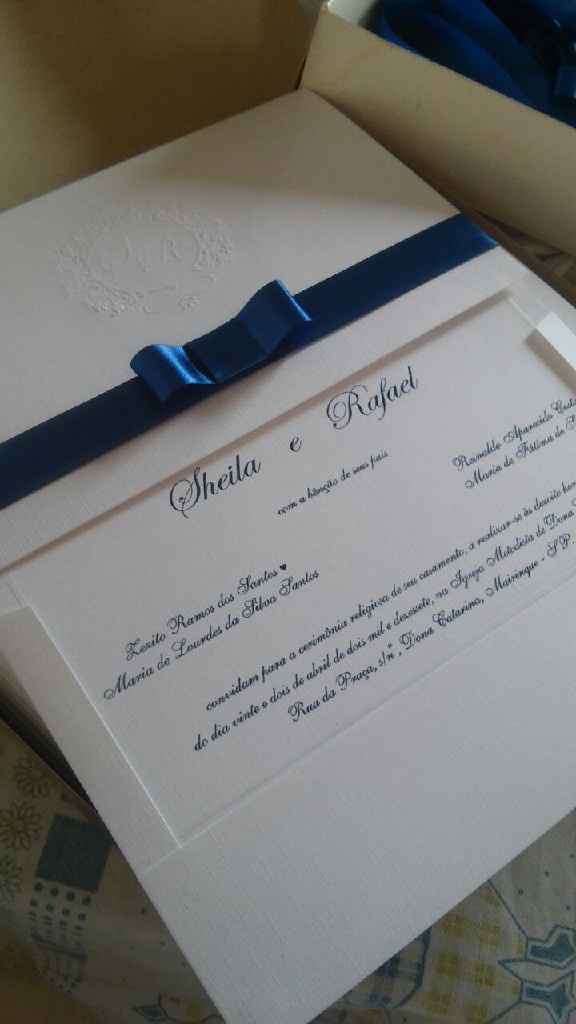 R
Sheila e Rafael
com a bênção de seus pais
Zezito Ramos dos Santos ♥
Maria de Lourdes da Silva Santos
Ronaldo Aparecido Costa
Maria de Fátima de S
convidam para a cerimônia religiosa de seu casamento, a realizar-se às dezoito hor
do dia vinte e dois de abril de dois mil e dezessete, na Igreja Metodista de Dona
Rua da Praça, s/nº, Dona Catarina, Mairinque - SP.